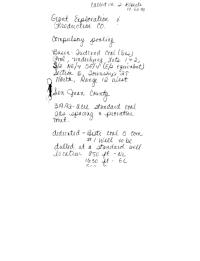 Called in 2 Blonds
Giant Exploration &
Production Co.
Compulsory pooling
Basin Fruitland Coal (Gas)
Pool, underlying Lots 1+2,
S/2 NE/4 SE/4 (E/2 equivalent)
Section 5, Township 25
North, Range 12 West
San Juan County
319.92-acre standard coal
gas spacing & proration
unit.
dedicated - Bisti Coal 5 Com
#1 Well to be
drilled at a standard well
location 850 ft - NL
1650 ft - EL